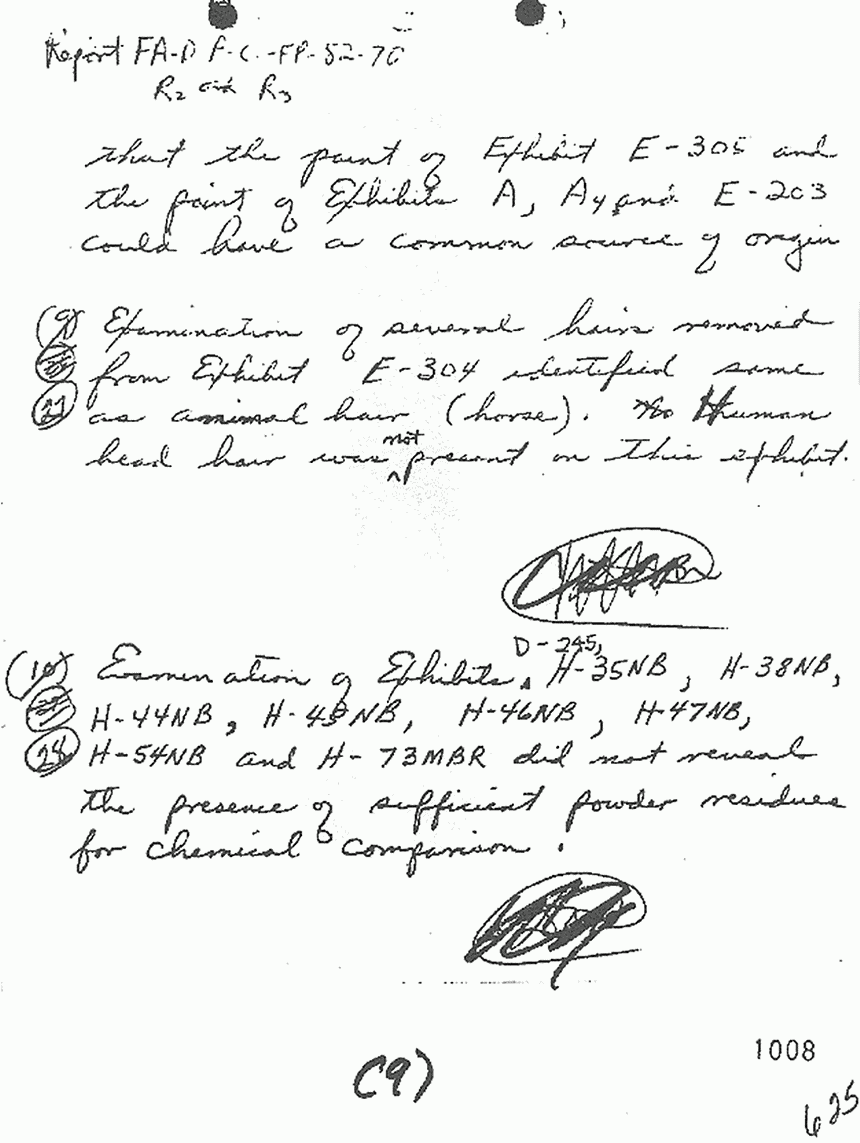 Report FA-D P-C-FP-52-70
R2 and R3
that the paint of Exhibit E-305 and
the paint of Exhibits A, A4, and E-203
could have a common source of origin
(9) Examination of several hairs removed
from Exhibit E-304 identified same
(27) as animal hair (horse). Human
head hair was not present on this exhibit.
D-245,
(10) Examination of Exhibits H-35NB, H-38NB,
H-44NB, H-45NB, H-46NB, H-47NB,
(28) H-54NB and H-73MBR did not reveal
the presence of sufficient powder residues
for chemical comparison.
(9)
1008
625